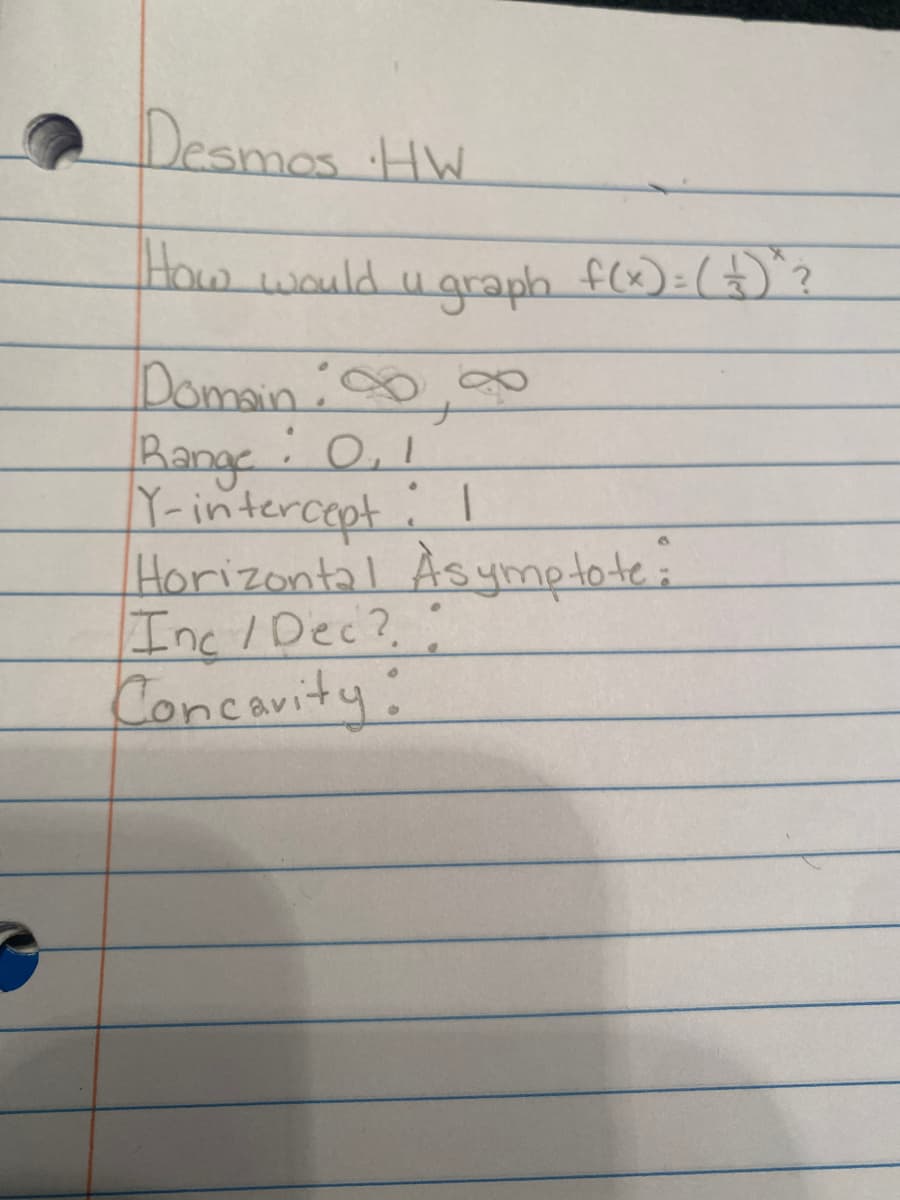 Desmos HW
How would u graph f(x)=(1/3)^x?
Domain: ∞, ∞
Range: 0, 1
Y-intercept: 1
Horizontal Asymptote:
Inc / Dec?:
Concavity: